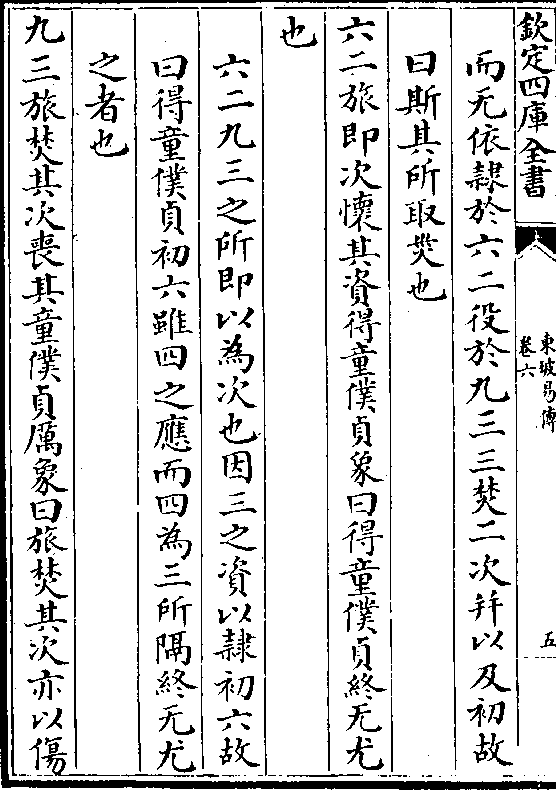 欽定四庫全書
東坡易傳
卷六
五
而无依隷於六二役於九三三焚二次并以及初故
曰斯其所取災也
六二旅即次懷其資得童僕貞象曰得童僕貞終无尤
也
六二九三之所即以為次也因三之資以隷初六故
曰得童僕貞初六雖四之應而四為三所隔終无尤
之者也
九三旅焚其次喪其童僕貞厲象曰旅焚其次亦以傷